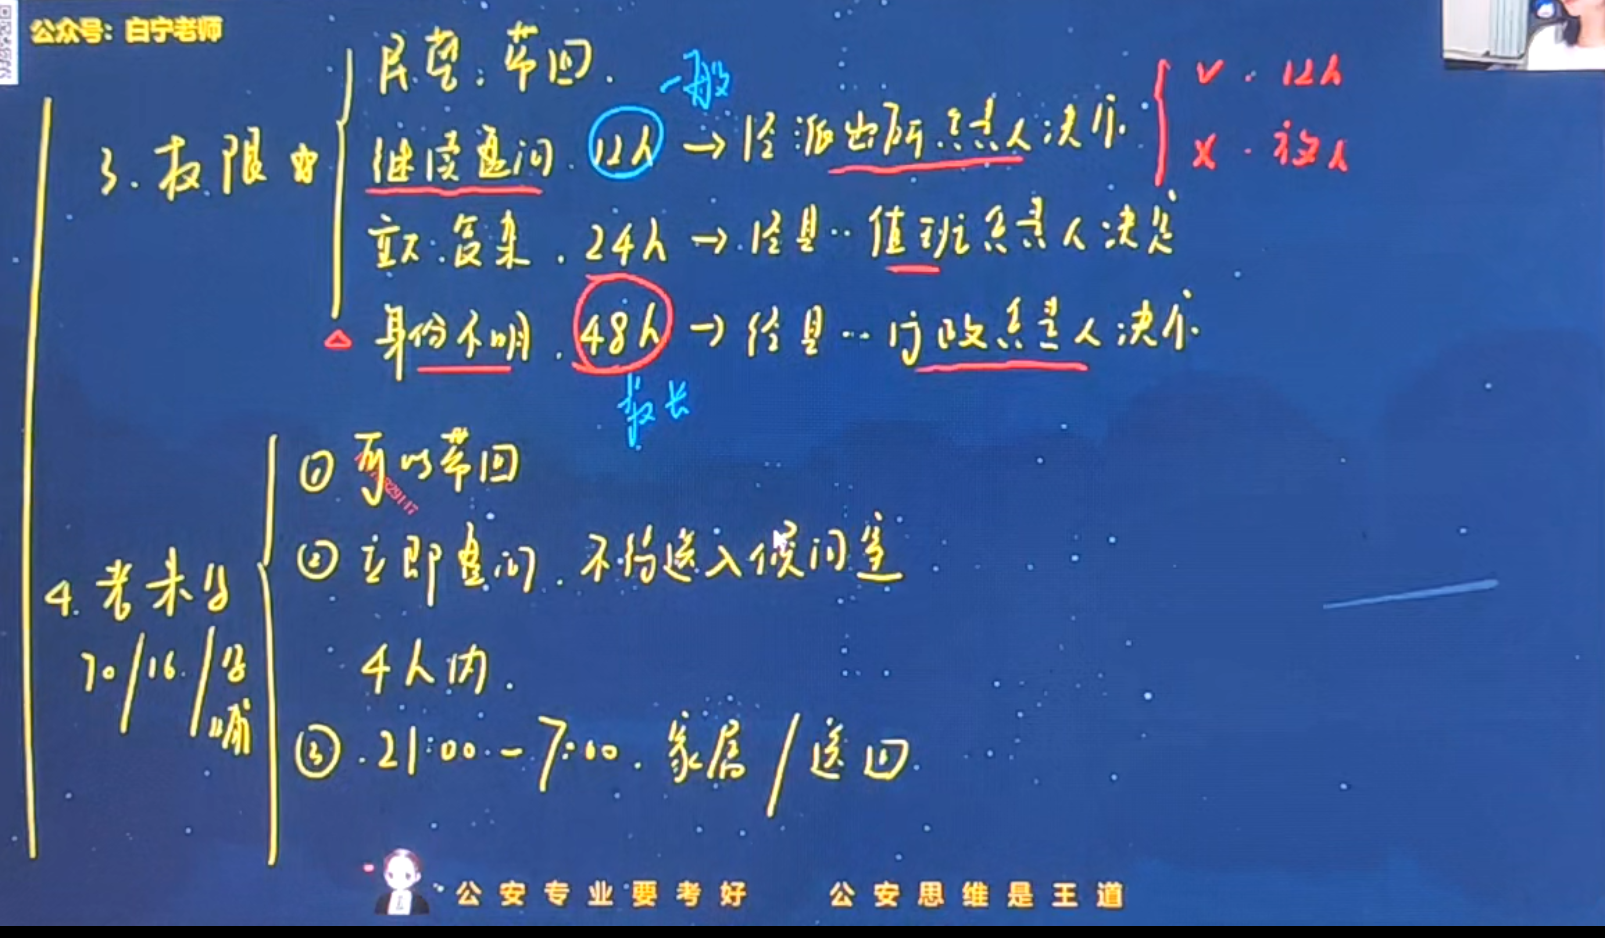 公众号：白宁老师
3. 权限
民警：带回.
继续盘问. 12h → 经派出所负责人决定
一般
√ · 12h
× · 放人
重大.复杂. 24h → 经县·· 值班负责人决定
△ 身份不明. 48h → 经县·· 行政负责人决定
最长
4. 老未孕
70/16/孕
哺
① 可以带回
② 立即盘问. 不得送入候问室
4h内.
③ . 21:00-7:00. 家属/送回.
公安专业要考好 公安思维是王道